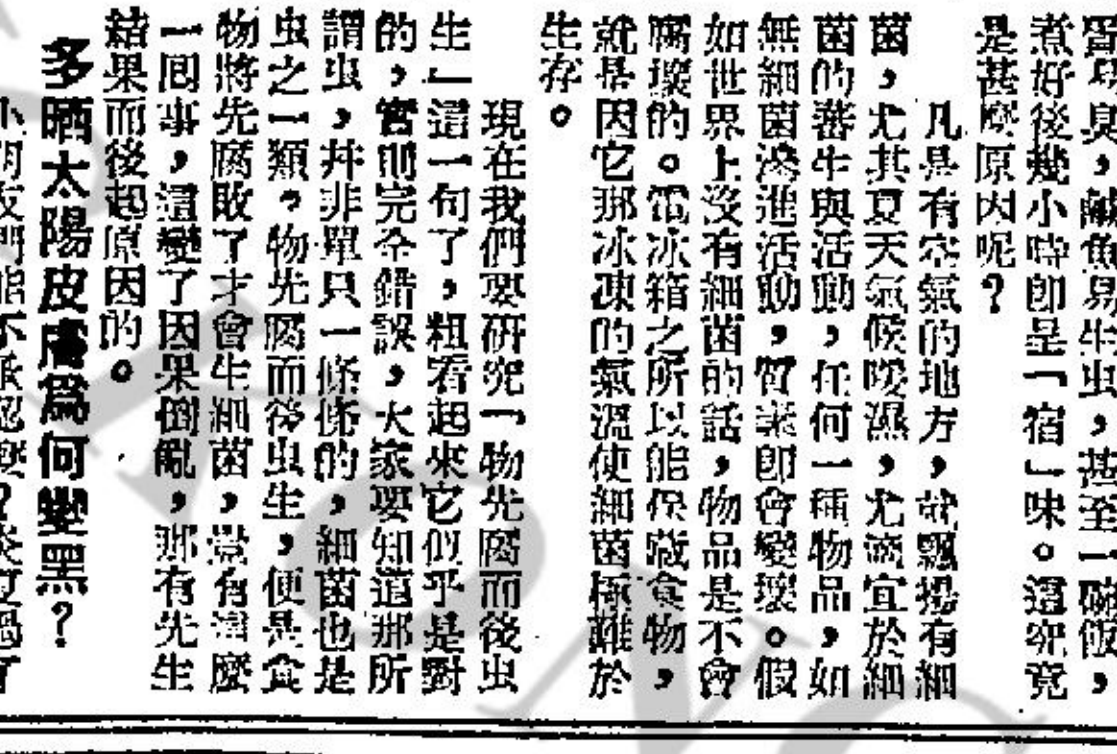 易臭，鹹魚易生虫，甚至一碗飯，
煮好後幾小時卽呈「宿」味。這究竟
是甚麼原因呢？
凡是有空氣的地方，就飄揚有細
菌，尤其夏天氣候暖濕，尤適宜於細
菌的蕃生與活動，任何一種物品，如
無細菌滲進活動，質素卽會變壞。假
如世界上沒有細菌的話，物品是不會
腐壞的。電冰箱之所以能保藏食物，
就是因它那冰凍的氣溫使細菌極難於
生存。
現在我們要研究「物先腐而後虫
生」這一句了，粗看起來它似乎是對
的，實則完全錯誤，大家要知道那所
謂虫，幷非單只一條條的，細菌也是
虫之一類。物先腐而後虫生，便是食
物將先腐敗了才會生細菌，豈有這麼
一囘事，這變了因果倒亂，那有先生
結果而後起原因的。
多晒太陽皮膚爲何變黑？